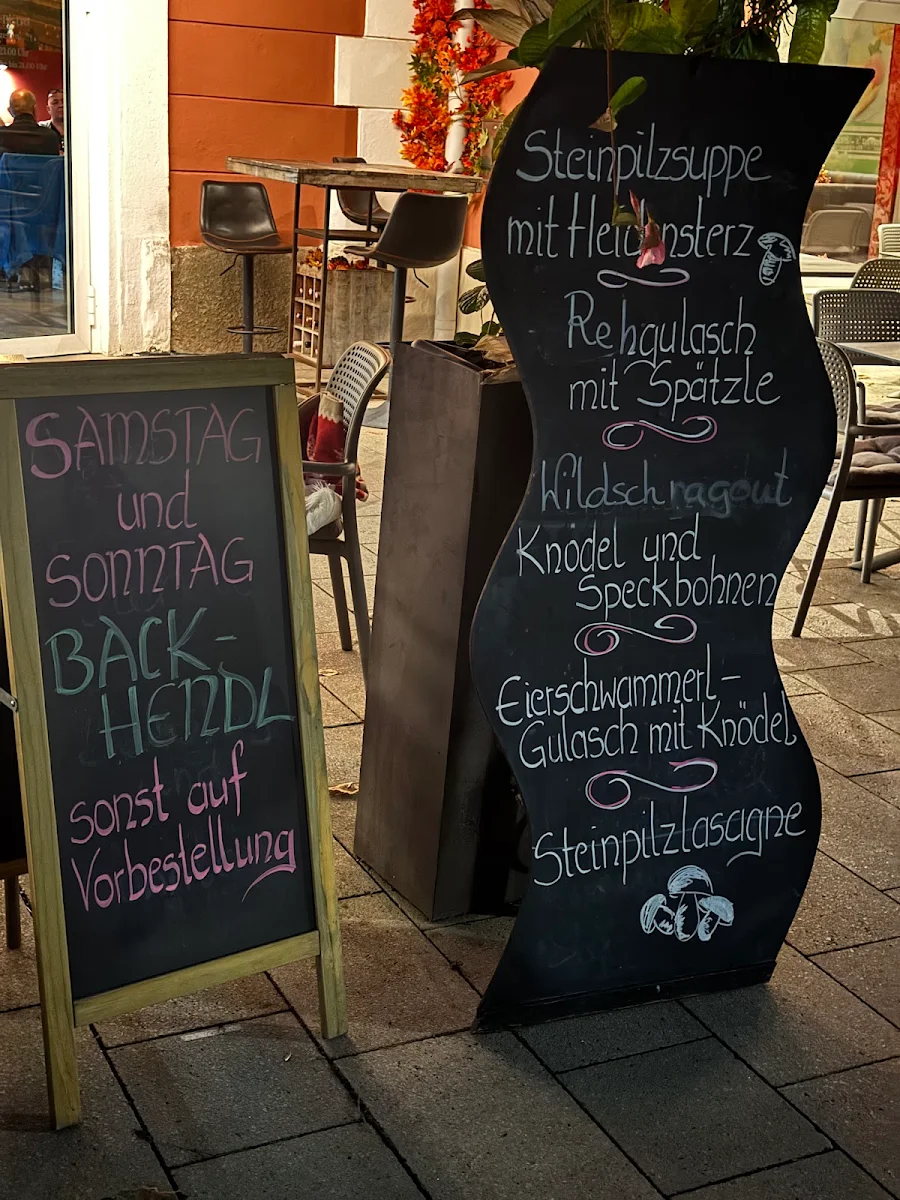 SAMSTAG
und
SONNTAG
BACK-
HENDL
sonst auf
Vorbestellung
Steinpilzsuppe
mit
Rehgulasch
mit Spätzle
Wildschragout
Knödel und
Speckbohnen
Eierschwammerl-
Gulasch mit Knödel
Steinpilzlasagne